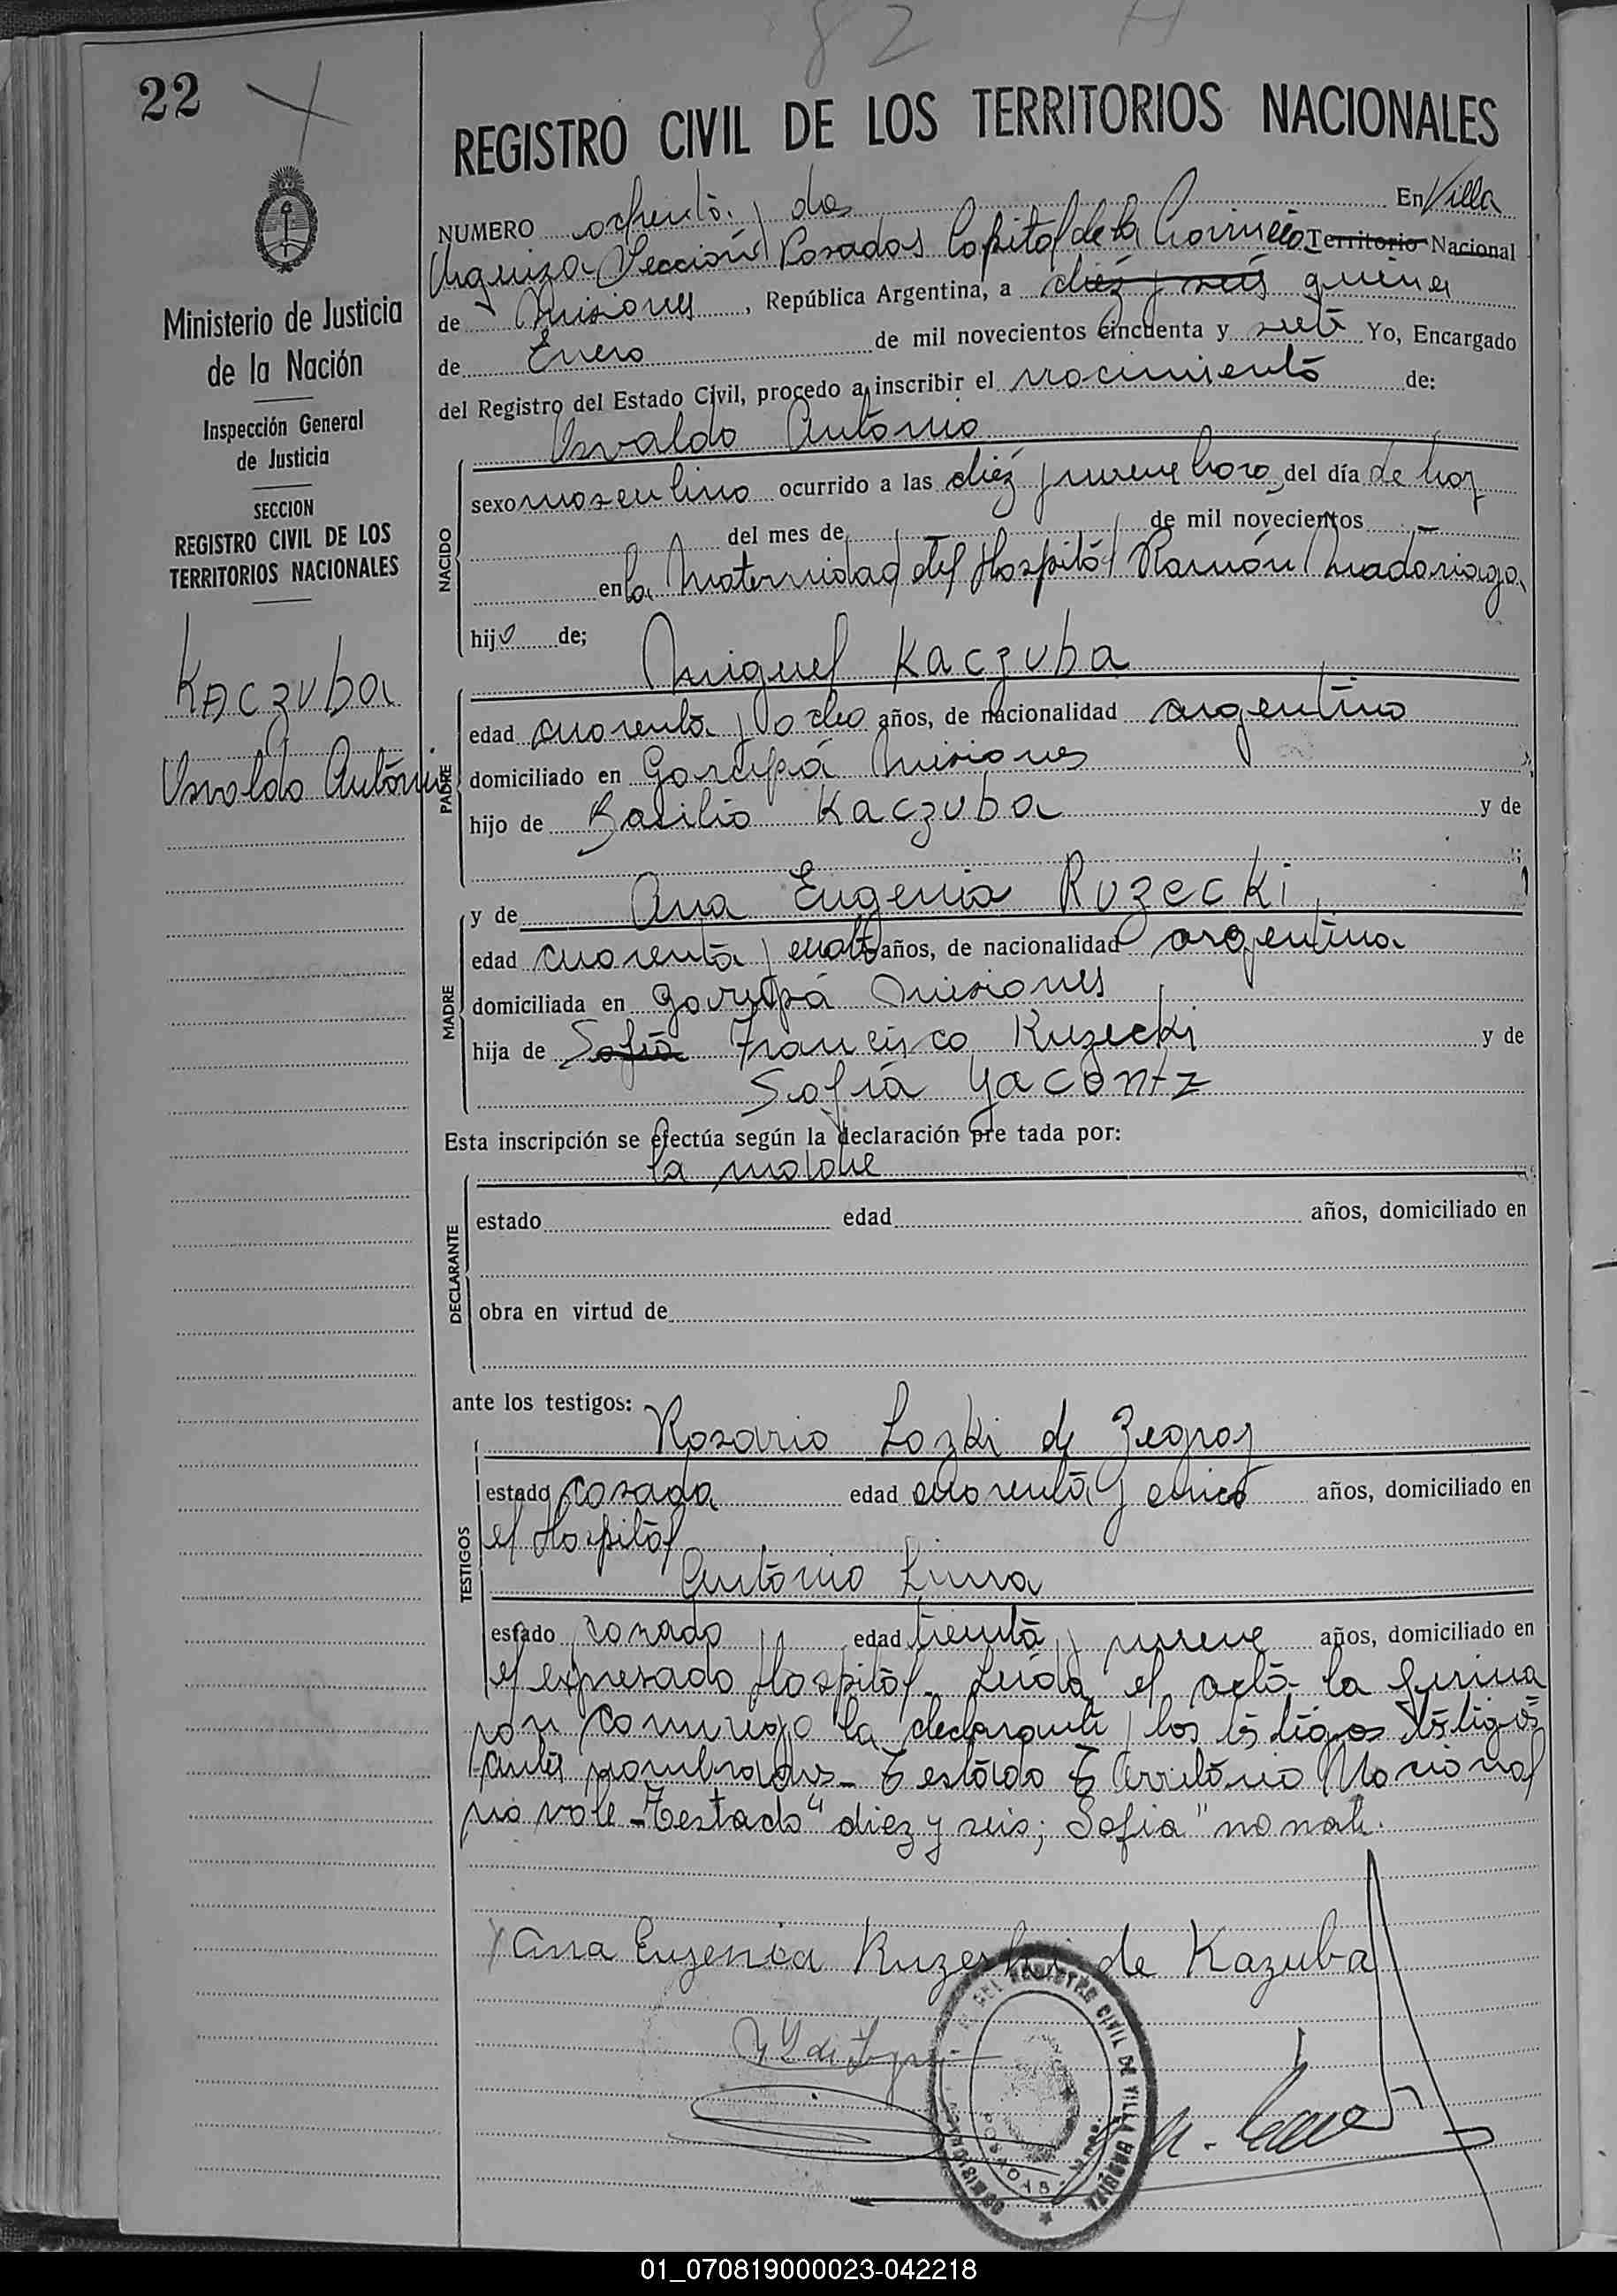 82
22
REGISTRO CIVIL DE LOS TERRITORIOS NACIONALES
NUMERO ochenta y dos En Villa
Urquiza Sección Posadas Capital de la Provincia Territorio Nacional
de Misiones, República Argentina, a diéz y seis quince
de Enero de mil novecientos cincuenta y siete Yo, Encargado
del Registro del Estado Civil, procedo a inscribir el nacimiento de:
Ministerio de Justicia
de la Nación
Inspección General
de Justicia
SECCION
REGISTRO CIVIL DE LOS
TERRITORIOS NACIONALES
Kaczuba
Osvaldo Antonio
NACIDO
Osvaldo Antonio
sexo masculino ocurrido a las diéz y nueve horas del día de hoy
del mes de de mil novecientos
en la Maternidad del Hospital Ramón Madariaga
hijo de;
PADRE
Miguel Kaczuba
edad cuarenta y ocho años, de nacionalidad argentino
domiciliado en Garupá Misiones
hijo de Basilio Kaczuba y de
MADRE
y de Ana Eugenia Ruzecki
edad cuarenta y cuatro años, de nacionalidad argentina
domiciliada en Garupá Misiones
hija de Sofia Francisco Ruzecki y de
Sofia Yacontz
Esta inscripción se efectúa según la declaración pre tada por:
DECLARANTE
la madre
estado edad años, domiciliado en
obra en virtud de
ante los testigos:
TESTIGOS
Rosario Lozki de Zegroy
estado casada edad cuarenta y cinco años, domiciliado en
el Hospital
Antonio Luna
estado casado edad treinta y nueve años, domiciliado en
el expresado Hospital. Leída el acta la firma
con conmigo la declarante y los testigos testigos
antes nombrados - Testado Territorio Nacional
no vale - Testado "diez y seis; Sofia" no vale.
Ana Eugenia Ruzeski de Kazuba
DEL REGISTRO CIVIL DE VILLA URQUIZA
01_070819000023-042218